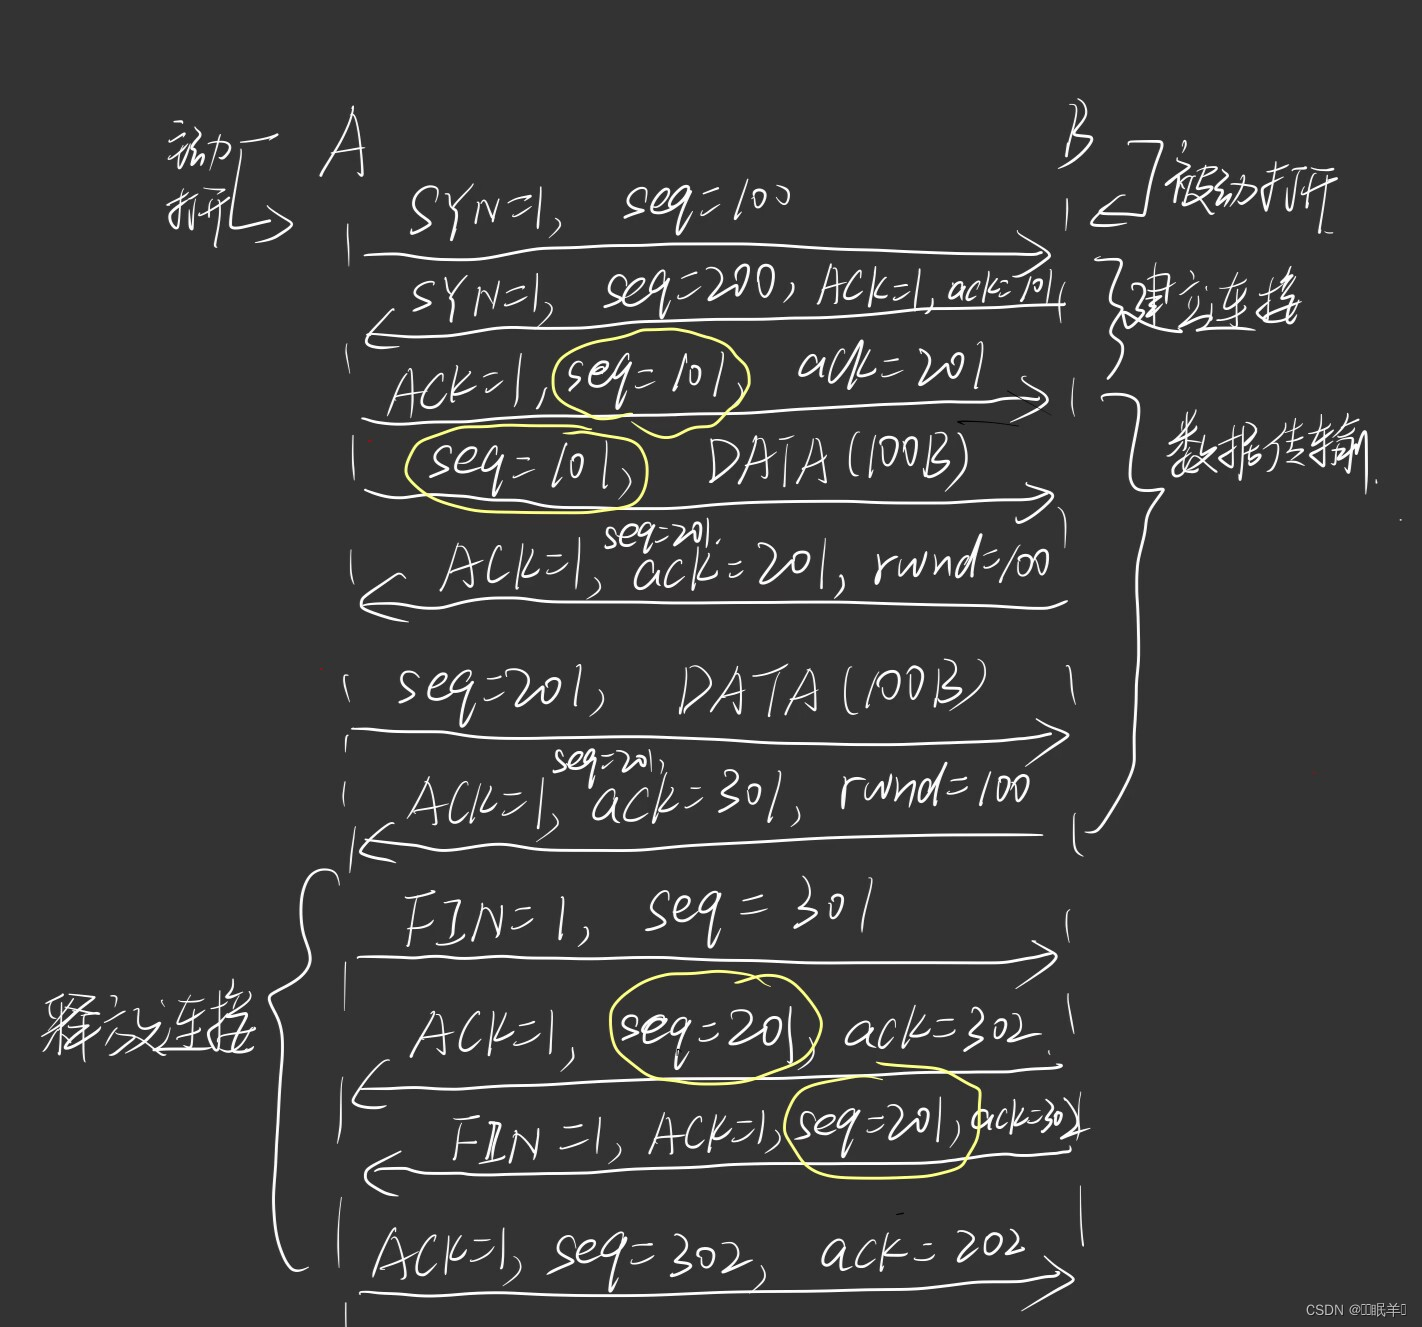 A
B
主动
打开
被动打开
SYN=1, seq=100
SYN=1, seq=200, ACK=1, ack=101
建立连接
ACK=1, seq=101, ack=201
seq=101, DATA(100B)
数据传输
seq=201.
ACK=1, ack=201, rwnd=100
seq=201, DATA(100B)
seq=201,
ACK=1, ack=301, rwnd=100
FIN=1, seq=301
释放连接
ACK=1, seq=201, ack=302
FIN=1, ACK=1, seq=201, ack=302
ACK=1, seq=302, ack=202
CSDN @眠羊